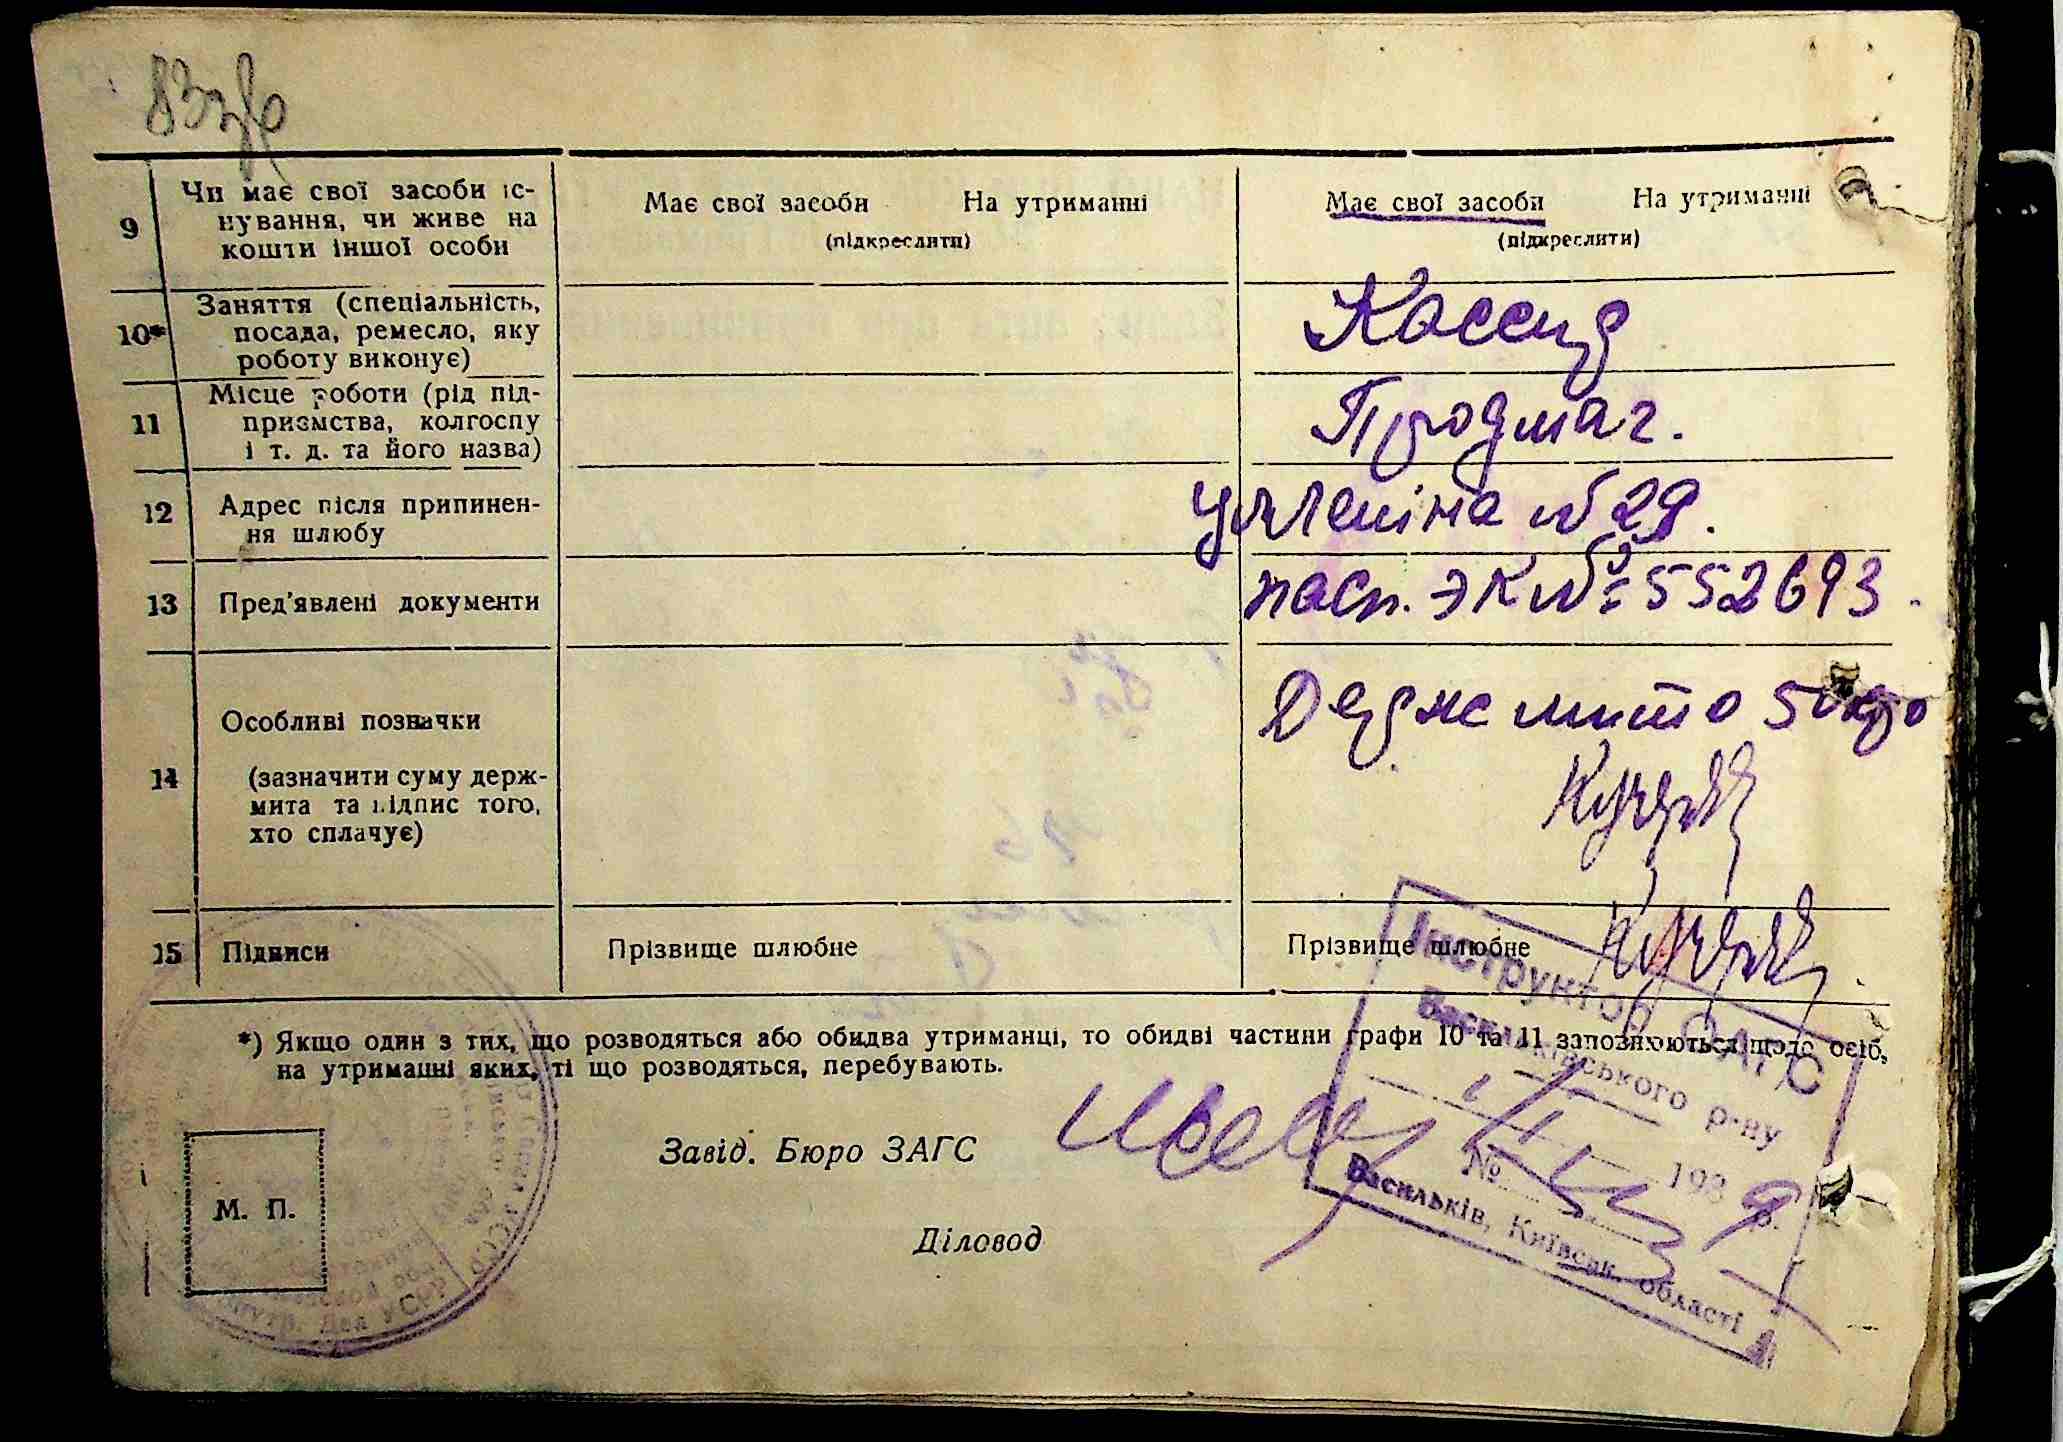 83зв
9 Чи має свої засоби іс-
нування, чи живе на
кошти іншої особи
Має свої засоби На утриманні
(підкреслити)
Має свої засоби На утриманні
(підкреслити)
10* Заняття (спеціальність,
посада, ремесло, яку
роботу виконує)
Кассир
11 Місце роботи (рід під-
приємства, колгоспу
і т. д. та його назва)
Продмаг.
12 Адрес після припинен-
ня шлюбу
ул Леніна № 29.
13 Пред'явлені документи
пасп. ЭК № 552693.
14 Особливі позначки
(зазначити суму держ-
мита та підпис того,
хто сплачує)
Держ мито 50 крб
15 Підписи
Прізвище шлюбне
Прізвище шлюбне
*) Якщо один з тих, що розводяться або обидва утриманці, то обидві частини графи 10 та 11 заповнюються щодо осіб,
на утриманні яких, ті що розводяться, перебувають.
Завід. Бюро ЗАГС
М. П.
Діловод
Інструктор ОАГС
Васильківського р-ну
193 9 р.
№
Васильків, Київськ. області